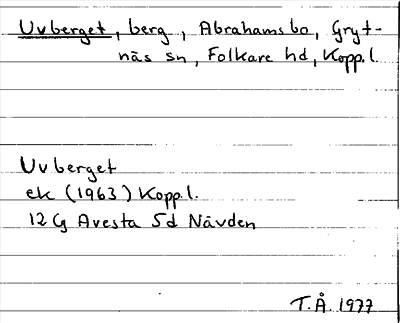 Uvberget, berg, Abrahamsbo, Gryt-
näs sn, Folkare hd, Kopp.l.
Uvberget
ek (1963) Kopp.l.
12 G Avesta 5d Nävden
T.Å. 1977